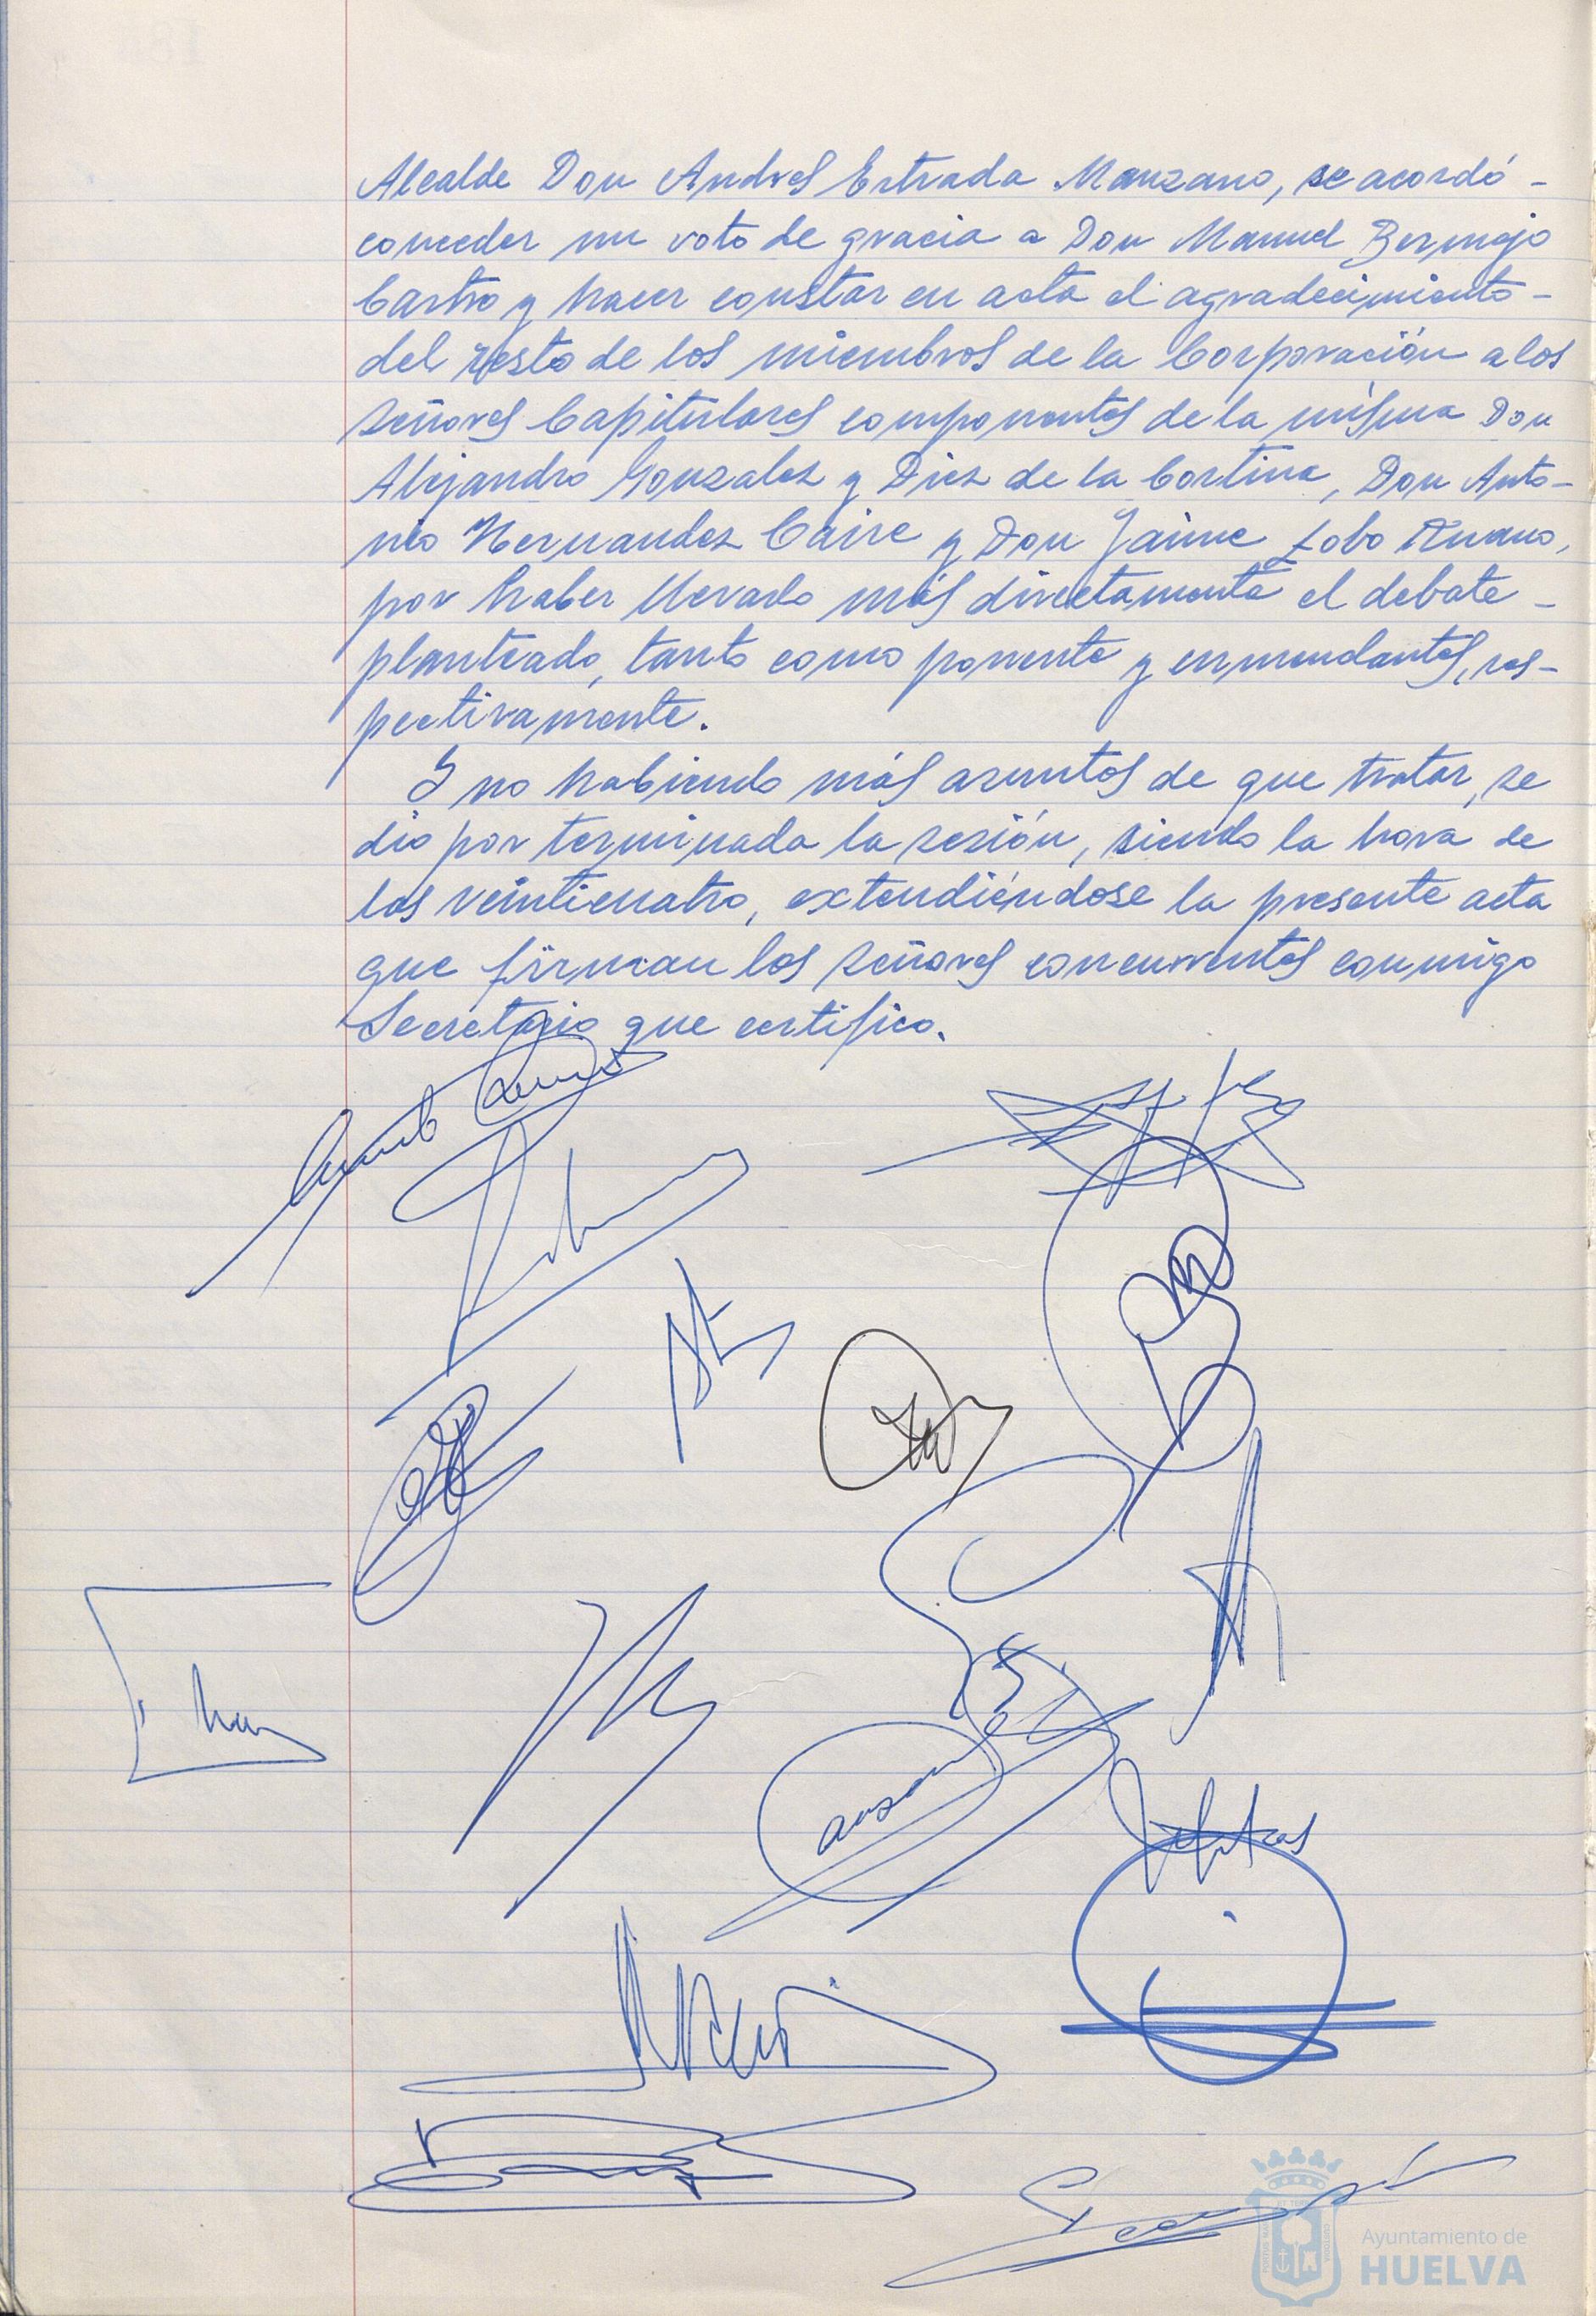 Alcalde Don Andres Estrada Manzano, se acordó -
conceder un voto de gracia a Don Manuel Bermejo
Castro y hacer constar en acta el agradecimiento -
del resto de los miembros de la Corporación a los
señores Capitulares componentes de la misma Don
Alejandro Gonzalez y Diez de la Cortina, Don Anto-
nio Hernandez Caire y Don Jaime Lobo
por haber llevado más directamente el debate -
planteado, tanto como ponente y enmendantes, res-
pectivamente.
Y no habiendo más asuntos de que tratar, se
dio por terminada la sesión, siendo la hora de
las veinticuatro, extendiéndose la presente acta
que firman los señores concurrentes conmigo
Secretario que certifico.
Ayuntamiento de
HUELVA